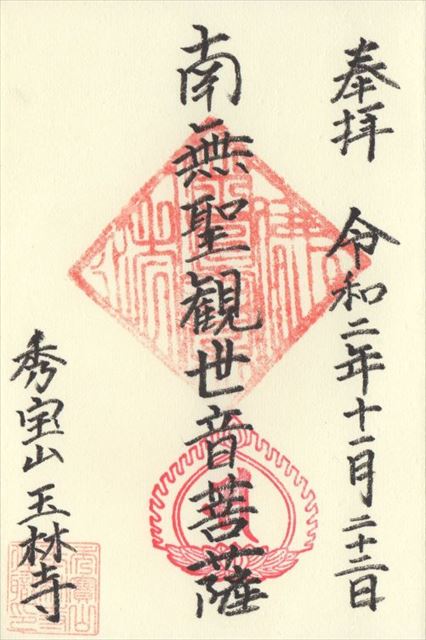 奉拝 令和二年十一月二十三日
南無聖観世音菩薩
秀宝山 玉林寺